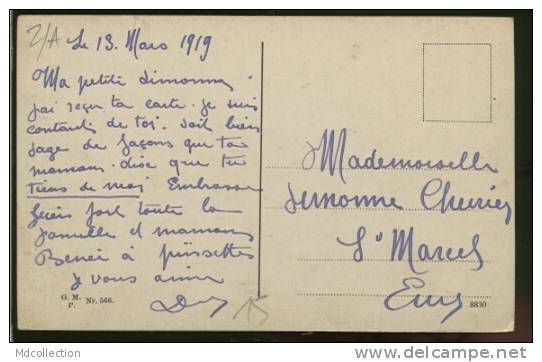 Le 13. Mars 1919
Ma petite Simonne
j'ai reçu ta carte. je suis
contente de toi. soit bien
sage de façons que ta
maman dise que tu
tiens de moi Embrasse
bien fort toute la
famille et maman
à
je vous aime
G. M.
P. Nr. 566.
15
Mademoiselle
Simonne
St Marcel
Eure
8830
Mdcollection
delcampe.net